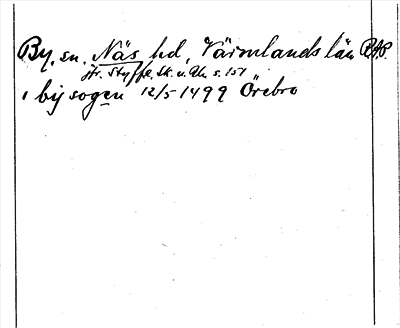 By, sn. Näs hd, Värmlands län RAP
jfr. Styffe, Sk. u. Un. s. 151
i bij sogen 12/5 1499 Örebro